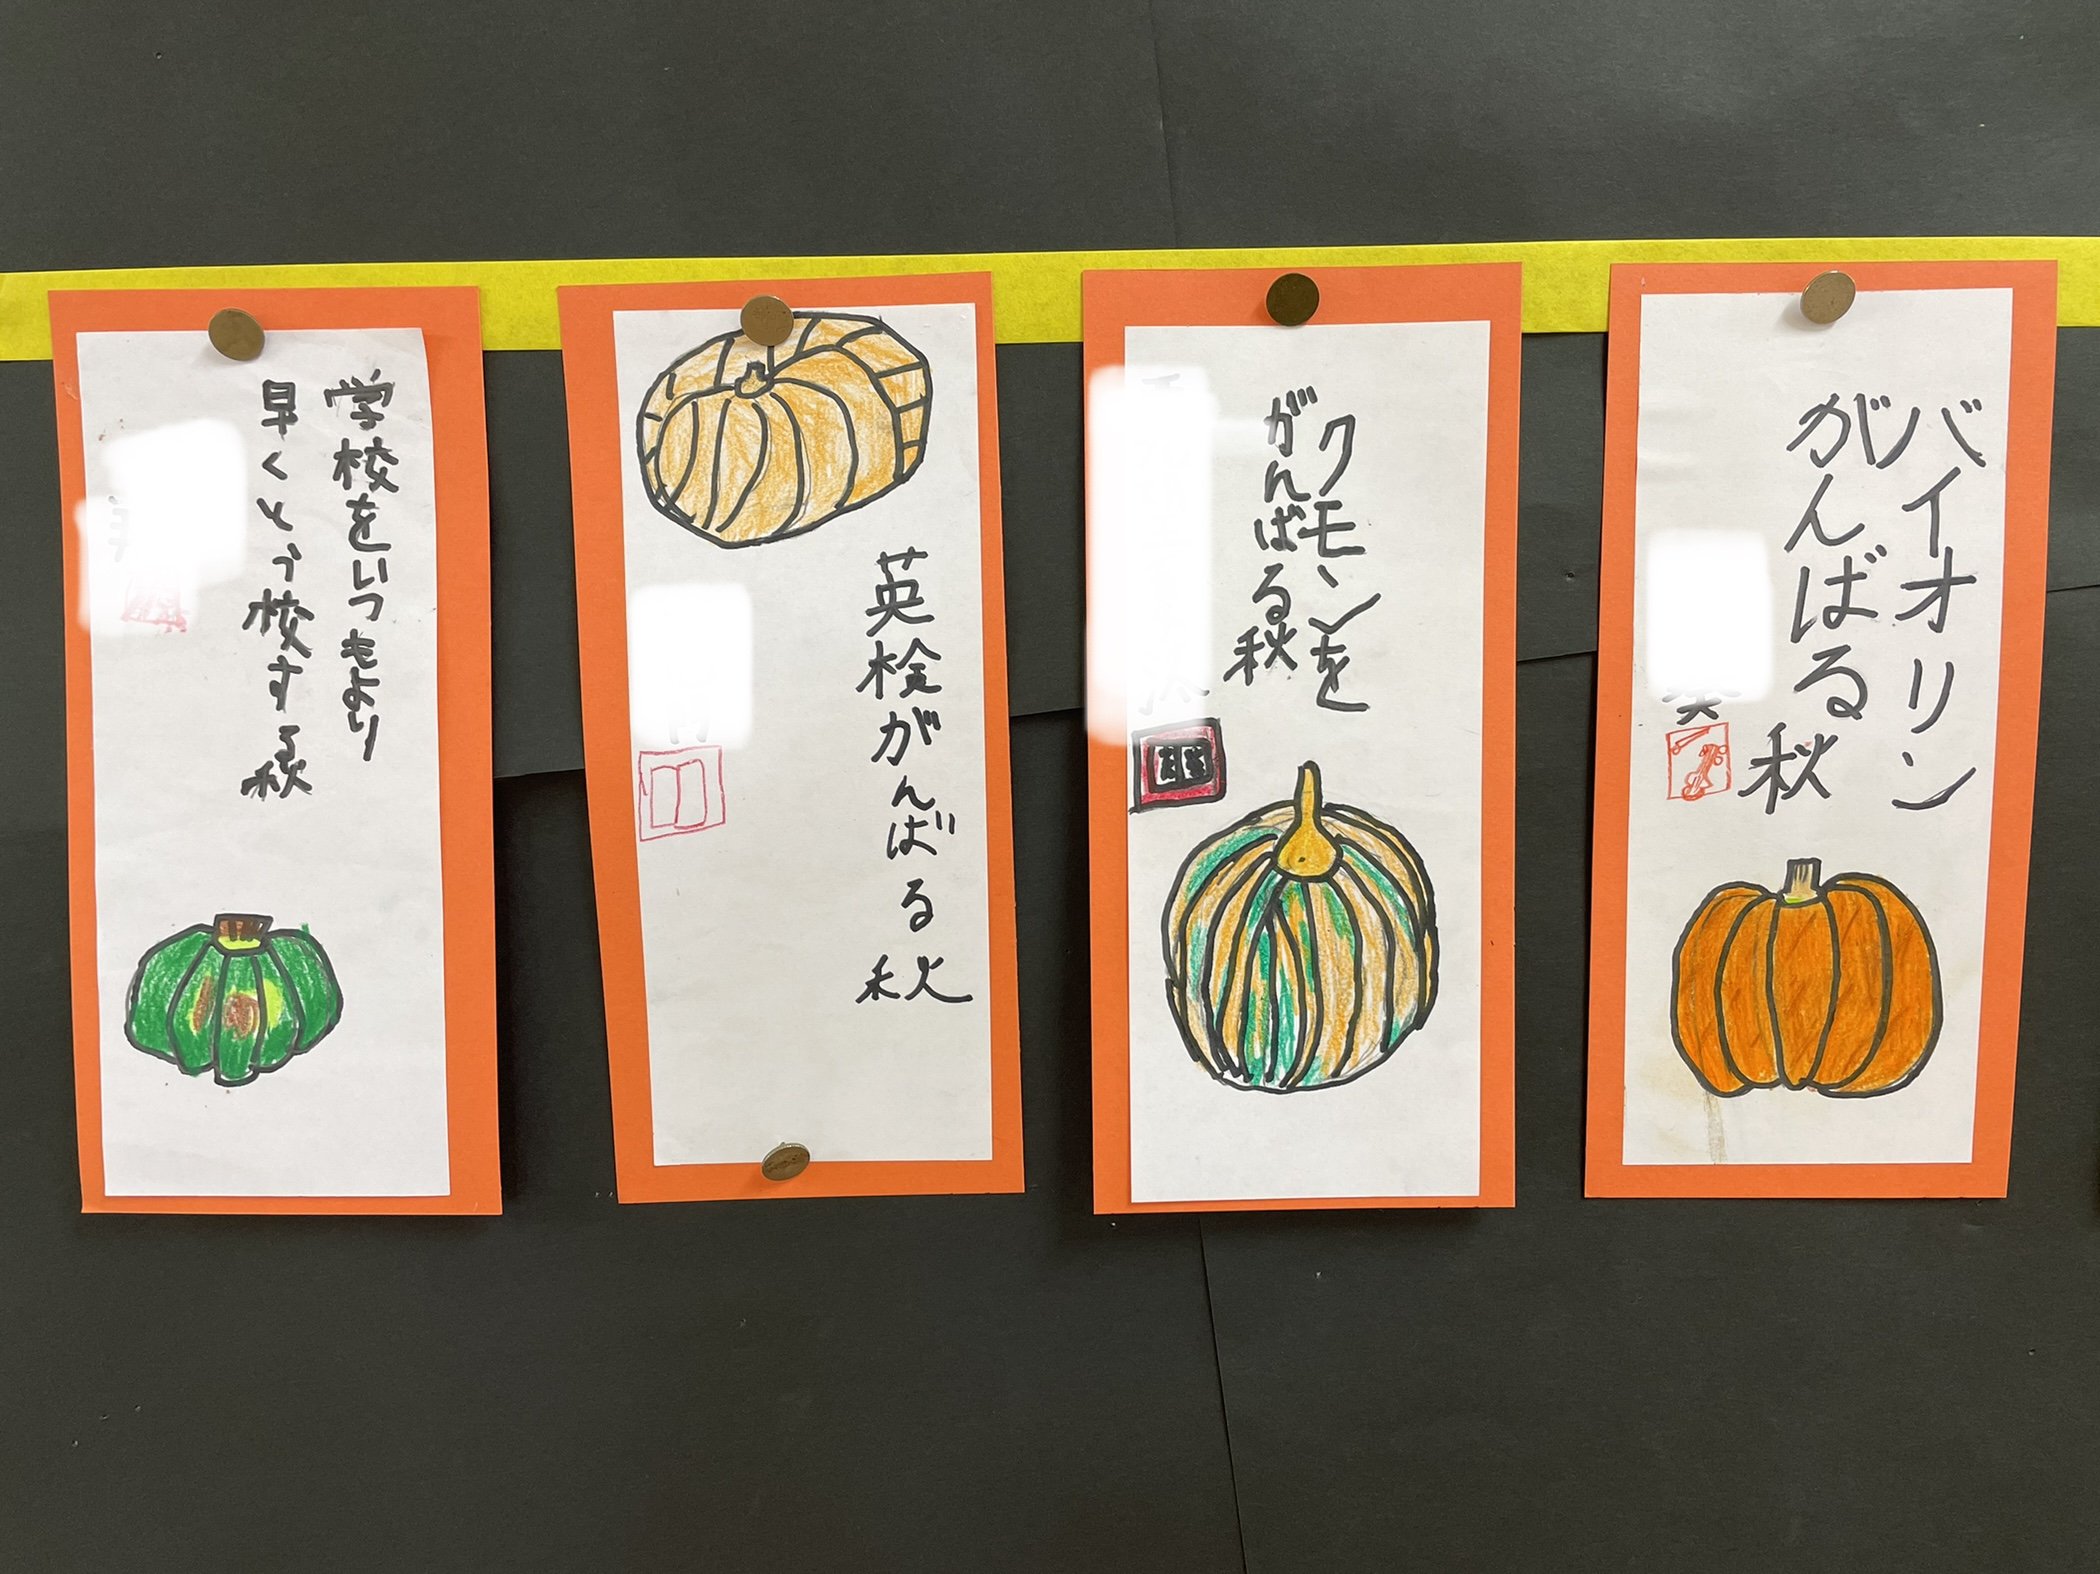 学校をいつもより
早くとう校する秋
英検がんばる秋
クモンを
がんばる秋
バイオリン
がんばる秋